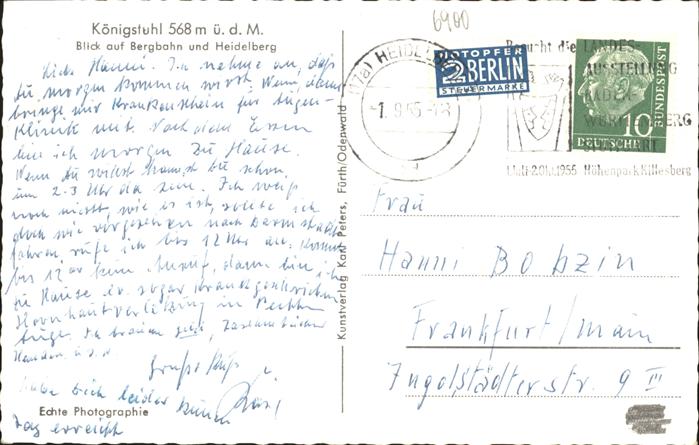 Königstuhl 568 m ü. d. M.
Blick auf Bergbahn und Heidelberg
Liebe Hanni. Ich nehme an, daß
Du morgen kommen wirst. Wenn, dann
bringe mir Krankenschein für Augen-
Klinik mit. Nach dem Essen
bin ich morgen zu Hause.
Wenn Du willst kannst Du schon
um 2-3 Uhr da sein. Ich weiß
noch nicht, wie es ist, sollte ich
doch wie vorgesehen nach Darmstadt
fahren, rufe ich bis 12 Uhr an. Kommt
bis 12 Uhr kein Anruf, dann bin ich
zu Hause. ev. sogar krankgeschrieben
Hornhautverletzung in rechten
Auge.
Gruß Kuß
habe Dich leider
Tag erreicht
Echte Photographie
Kunstverlag Karl Peters, Fürth/Odenwald
6900
(17a) HEIDELBERG
-1.9.55-
NOTOPFER
2 BERLIN
STEUERMARKE
Besucht die LANDES-
AUSSTELLUNG
BADEN
WÜRTTEMBERG
STUTTGART
1955 Höhenpark Killesberg
10
DEUTSCHE
BUNDESPOST
Frau
Hanni Bobzin
Frankfurt/Main
Ingolstädterstr. 9 III